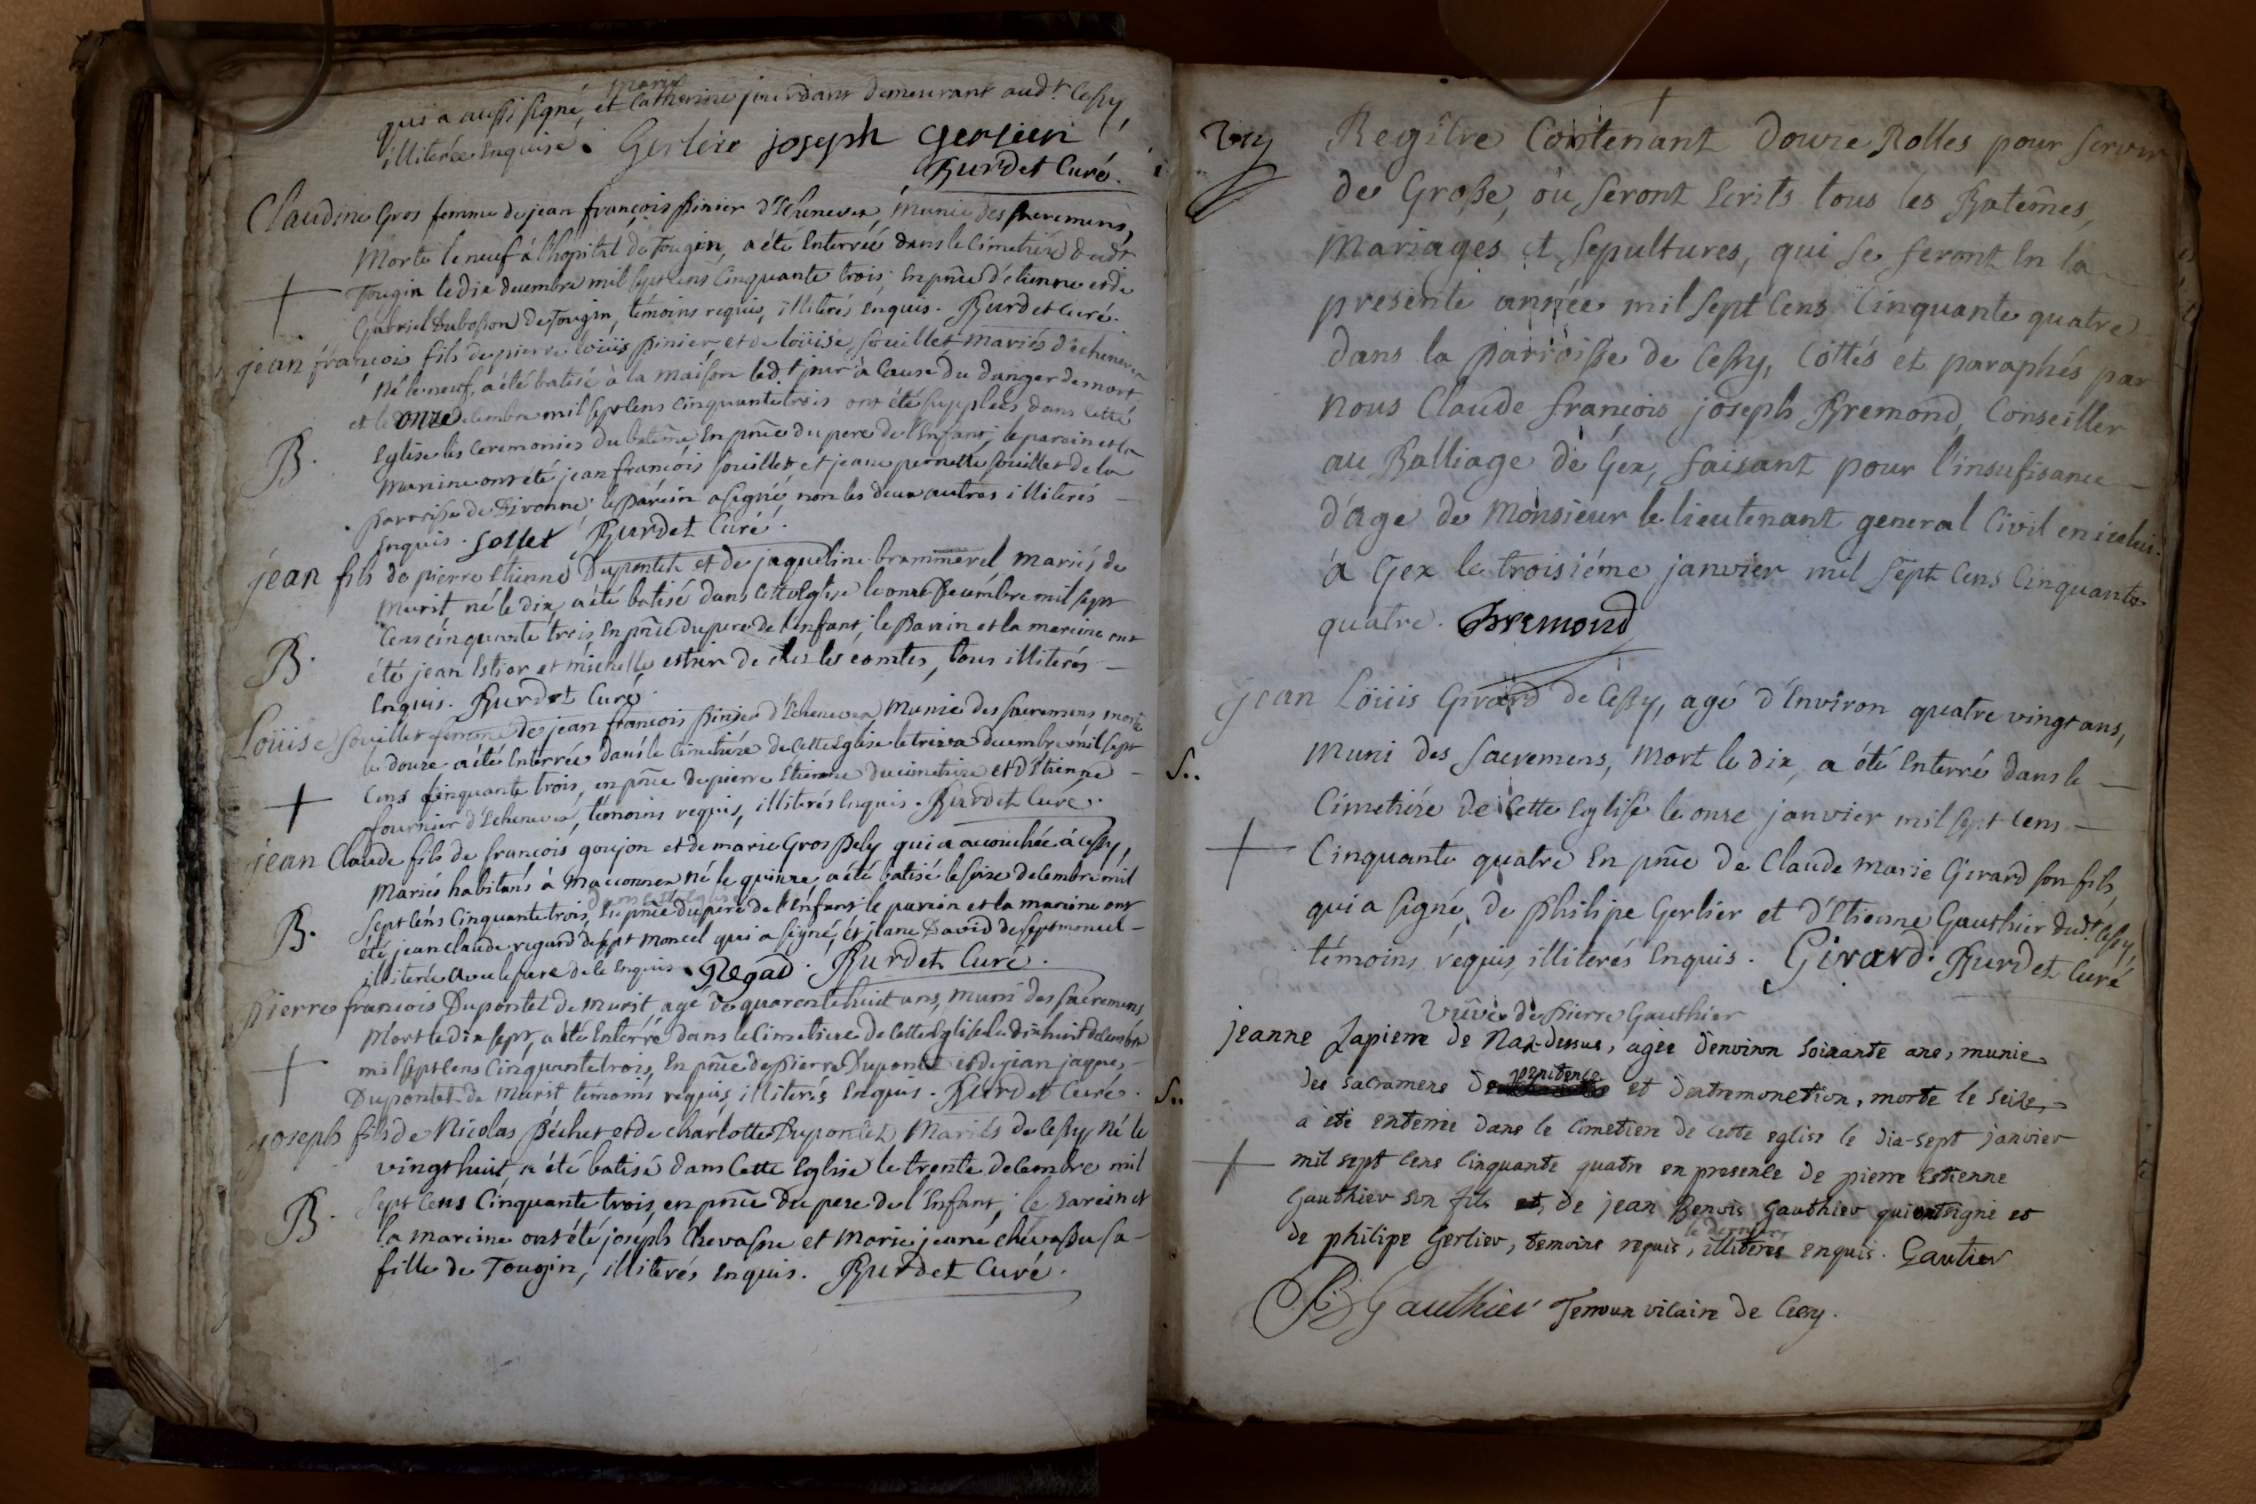 qui a aussi signé, et marie Catherine jourdant demeurant aud.t Cessy,
illiterée Enquise. Gerlier joseph gerlier
Burdet Curé.
Claudine Gros femme de jean françois pinier d'Echenevex, Munie des sacremens,
Morte le neuf à l'hopital de Tougin, a été Enterrée dans le Cimetiére dudt
Tougin le dix decembre mil sept cens Cinquante trois; En pñce d'etienne et de
Gabriel Dubosson de Tougin, témoins requis, illiterés enquis. Burdet Curé.
jean françois fils de pierre loüis pinier et de loüise souillet mariés d'Echenevex
Né le neuf, a été batisé à la maison led.t jour à Cause du danger de mort
et le onze decembre mil sept cens cinquante trois ont été supplées dans Cette
B. Eglise les Ceremonies du batême, En pñce du pere de l'Enfant; le parein et la
mareine ont été jean françois souillet et jeane pernette souillet de la
parroisse de Divonne; le parein a signé, non les deux autres illiterés
Enquis. sollet Burdet Curé.
jean fils de pierre Etienne Dupontet et de jaqueline brammerel mariés de
Murit, né le dix, a été batisé dans Cette Eglise le onze Decembre mil sept
Cens cinquante trois, En pñce du pere de l'Enfant; le Parein et la mareine ont
B. été jean Estier et michelle estier de chez les comtes, tous illiterés
Enquis. Burdet Curé.
Loüise souillet femme de jean françois pinier d'Echenevex, Munie des sacremens, morte
le douze a été Enterrée dans le Cimetiére de Cette Eglise le treize decembre mil sept
Cens Cinquante trois, en pñce de pierre Etienne et d'Etienne
fournier d'Echenevex, témoins requis, illiterés Enquis. Burdet Curé.
jean Claude fils de françois goujon et de marie Gros Pely qui a acouchée à Cessy,
Mariés habitans à Maconnex né le quinze, a été batisé le seize decembre mil
sept Cens Cinquante trois, En pñce du pere de l'Enfant; le parein et la mareine ont
B. été jean claude regard de sept moncel qui a signé, et jeane David de septmoncel
illiterée Enquis. Regad. Burdet Curé.
Pierre françois Dupontet de Murit, agé de quarente huit ans, Muni des sacremens,
Mort le dix sept, a été Enterré dans le Cimetiere de Cette Eglise le dix huit decembre
mil sept cens Cinquante trois, En pñce de Pierre Dupontet et de jean jaques
Dupontet de Murit témoins requis, illiterés Enquis. Burdet Curé.
joseph fils de Nicolas Péchet et de Charlotte Dupontet Mariés de Cessy, Né le
vingt huit, a été batisé dans Cette Eglise le trente decembre mil
B. sept Cens Cinquante trois, en pñce du pere de l'Enfant; le Parein et
la mareine ont été joseph Chevassu et Marie jeane chevassu sa
fille de Tougin, illiterés enquis. Burdet Curé.
Regître Contenant Douze Rolles pour servir
de Grosse, où seront Ecrits tous les Batêmes,
Mariages et sepultures, qui se feront En la
presente année mil sept Cens Cinquante quatre
dans la parroisse de Cessy, Cottés et paraphés par
nous Claude françois joseph Bremond, Conseiller
au Balliage de Gex, faisant pour l'insufisance
d'age de Monsieur le lieutenant general Civil en icelui.
à Gex le troisiéme janvier mil sept Cens Cinquante
quatre. Bremond
jean Loüis Girard de Cessy, agé d'Environ quatre vingt ans,
S.. Muni des sacremens, Mort le dix, a été Enterré dans le
Cimetiére de Cette Eglise le onze janvier mil sept Cens
Cinquante quatre En pñce de Claude Marie Girard son fils,
qui a signé, de Philipe Gerlier et d'Etienne Gauthier dud.t Cessy,
témoins requis, illiterés Enquis. Girard. Burdet Curé
vûve de Pierre Gauthier
jeanne Lapierre de Naz-dessus, agée d'environ soixante ans, munie
S.. des sacramens de penitence et d'extremonction, morte le seize,
a été enterrée dans le Cimetiere de cette eglise le dix-sept janvier
mil sept cens Cinquante quatre en presence de pierre Estienne
Gauthier son fils et de jean Benois Gauthier qui ont signé et
de philipe Gerlier, temoins requis, le dernier illiteré enquis. Gautier
Gauthier Temoux vicaire de Cessy.